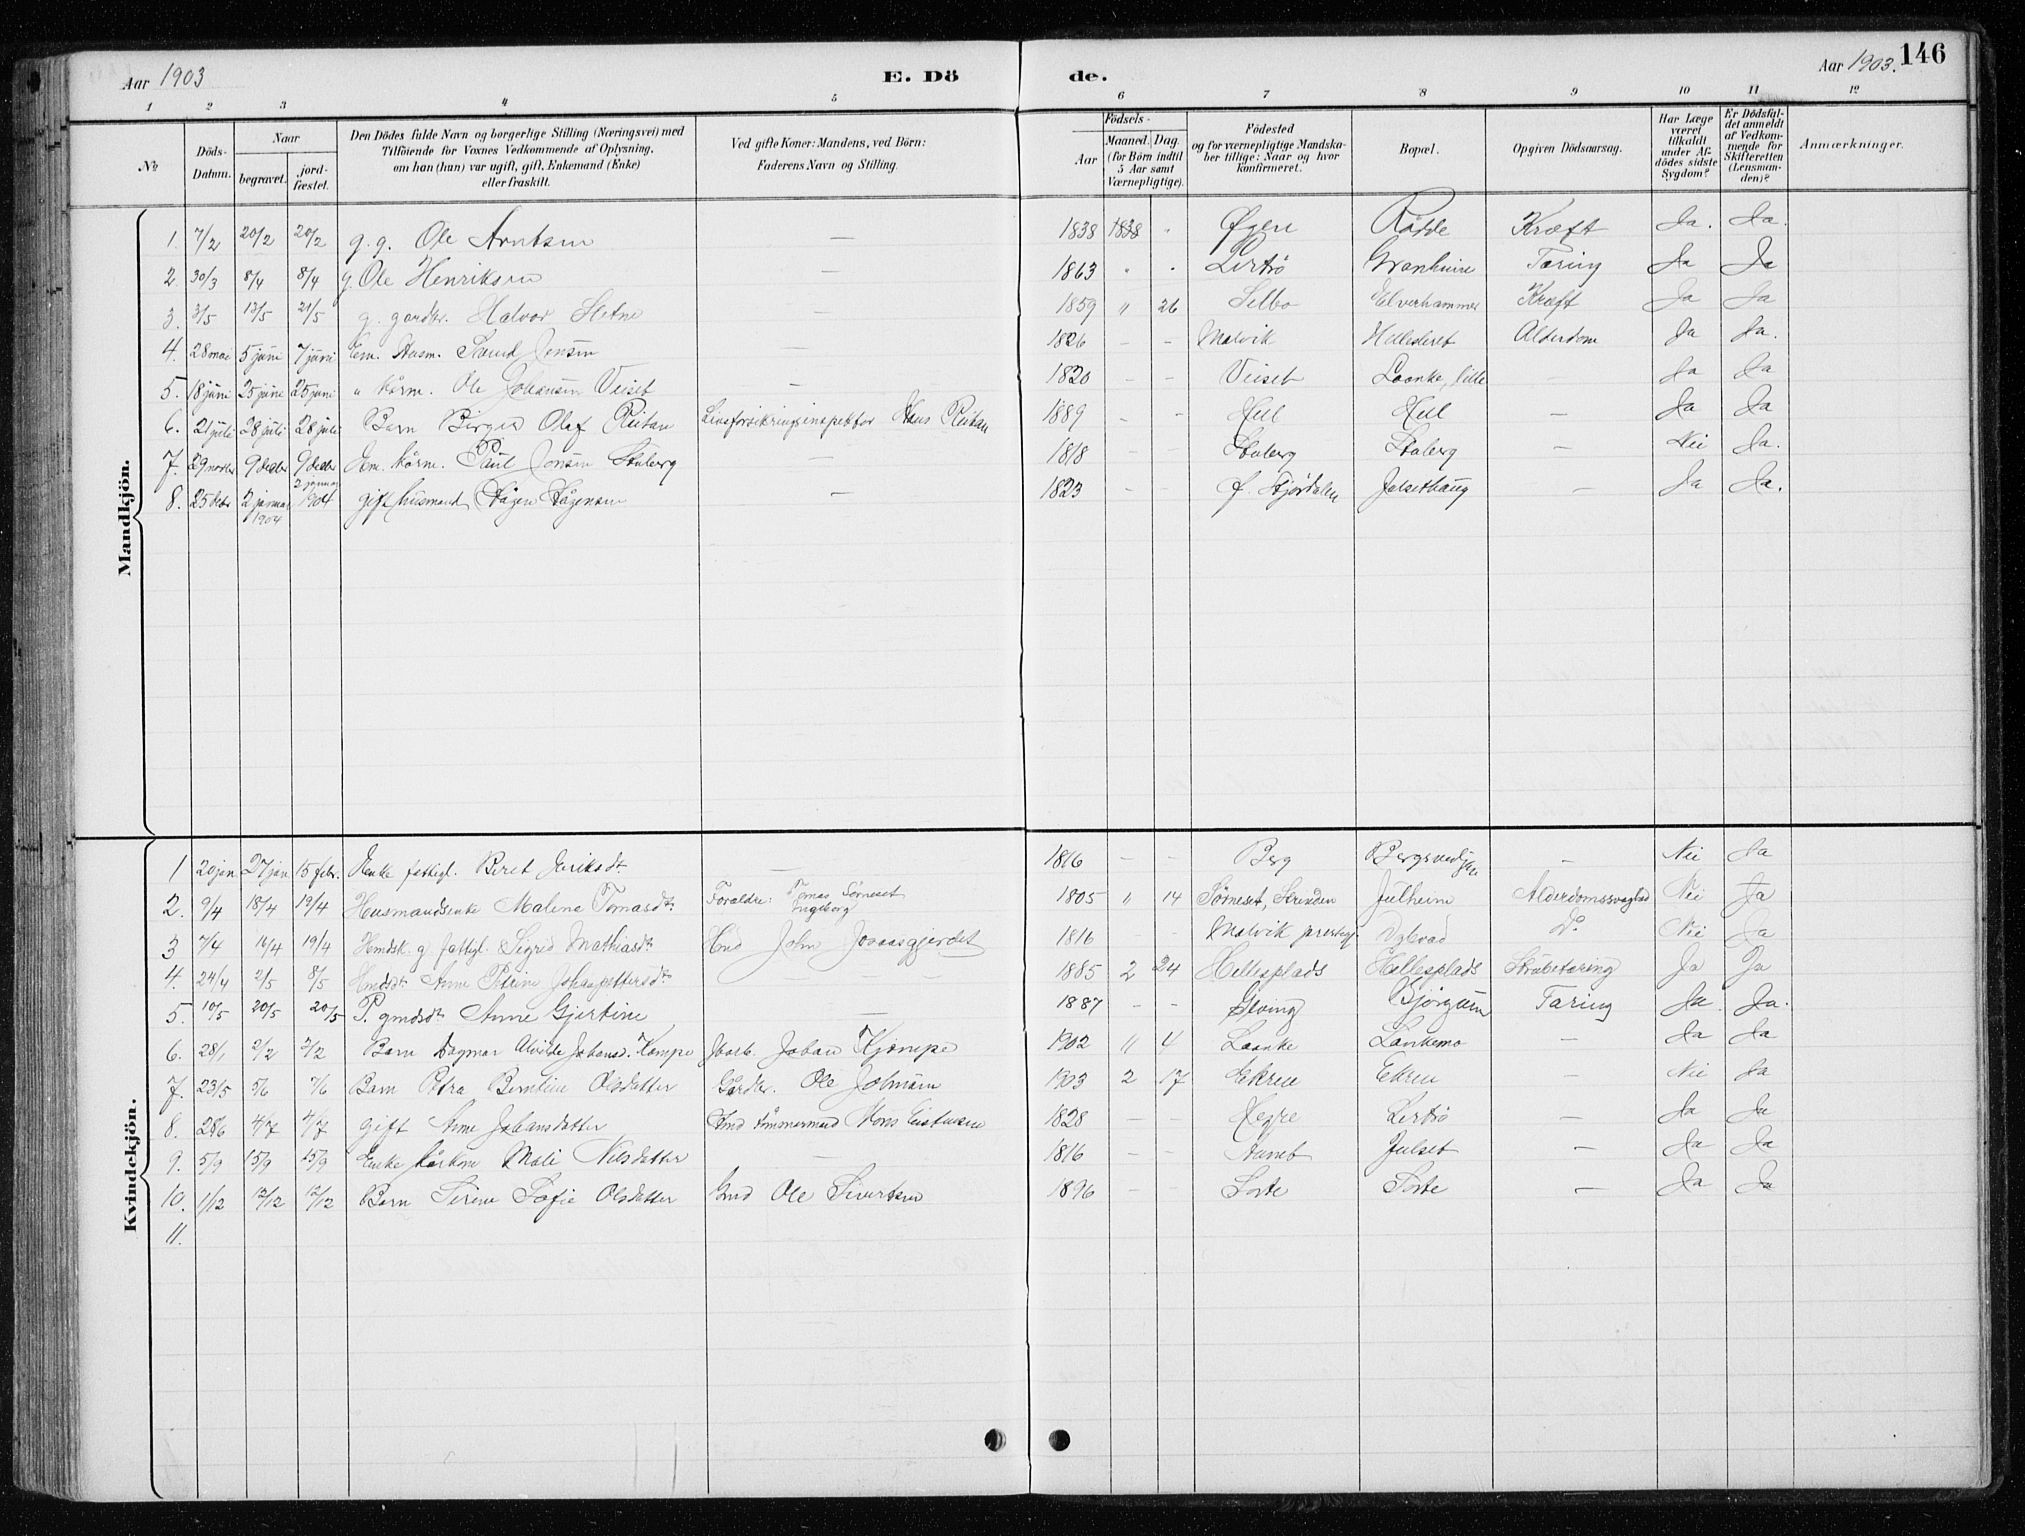 Aar 1903 E. Dö de. Aar 1903. 146
1 2 3 4 5 6 7 8 9 10 11 12
№
Döds-Datum.
Naar
begravet.
jord-fæstet.
Den Dödes fulde Navn og borgerlige Stilling (Næringsvei) med
Tilföiende for Voxnes Vedkommende af Oplysning,
om han (hun) var ugift, gift, Enkemand (Enke)
eller fraskilt.
Ved gifte Koner: Mandens, ved Börn:
Faderens Navn og Stilling.
Födsels-
Aar
Maaned. Dag.
(for Börn indtil
5 Aar samt
Værnepligtige).
Födested
og for værnepligtige Mandska-
ber tillige: Naar og hvor
konfirmeret.
Bopæl.
Opgiven Dödsaarsag.
Har Læge
været
tilkaldt
under Af-
dödes sidste
Sygdom?
Er Dödsfal-
det anmeldt
af Vedkom-
mende for
Skifteretten
(Lensman-
den)?
Anmærkninger.
Mandkjön.
1. 7/2 20/2 20/2 g. g. Ole Arntsen — 1838 1838 " Øgere Rødde Kræft Ja. Ja.
2. 30/3 8/4 8/4 g. Ole Henriksen — 1863 " " Lertrø Granheine Tæring Ja Ja
3. 3/5 13/5 21/5 g. gardbr. Halvor Sletne — 1859 " 26 Selbo Elverhammer Kræft Ja Ja
4. 28 mai 5 juni 7 juni Em. Husm. Jonsen — 1826 — — Malvik Hellesleret Alderdom Ja Ja.
5. 18 juni 25 juni 25 juni " kårm. Ole Johansen Veiset — 1820 — — Veiset Laanke, lille — Ja Ja
6. 21 juli 28 juli 28 juli Barn Birger Olaf Reitan Livsforsikringsinspektør Hans Reitan 1889 — — Hell Hell — Ja Ja
7. 29 novbr 9 decbr 9 decbr Em. kårm. Paul Jonsen Stuberg — 1818 — — Stuberg Stuberg — Nei Ja.
8. 25 decbr 2 januar 1904 2 januar 1904 gift husmand Hågen Hågensen — 1823 f. Stjørdalen Julsethaug — Ja Ja.
Kvindekjön.
1 20 jan 27 jan 15 febr. Enke fattigl. Beret Eriksdt. — 1816 — — Berg — Nei Ja
2. 9/4 18/4 19/4 Husmandsenke Malena Tomasdt. Forældre: Tomas Sørneset Ingeborg 1805 " 14 Sørneset, Strinden Julheim Alderdomssvaghed Nei Ja
3 7/4 16/4 19/4 Hmdsk. g fattigl. Sigrid Mathiasdt. Hmd John Jovaasgjerdet 1816 — — Malvik prestegj. Do Nei Ja
4. 24/4 2/5 8/5 Hmdsdt Anne Petrine Johanpettersdt. — — 1885 2 24 Hellesplads Hellesplads Strubetæring Ja Ja
5. 10/5 20/5 20/5 P. gmdsdt. Anne Gjertine — 1887 — — Gjeving Bjørgum Tæring Ja Ja.
6. 28/1 2/2 2/2 Barn Dagmar Alvilde Johansd. Kæmpe Jbarb. Johan Kjæmpe 1902 " 4 Laanke Lankemo — Ja Ja
7. 23/5 5/6 7/6 Barn Petra Berntine Olsdatter Gårdbr. Ole Johnsen 1903 2 17 Ekren Ekren — Nei Ja
8. 28/6 4/7 4/7 gift Anne Johansdatter Hmd tømmermand Mons Eistensen 1828 — — Hegre Lertrø — Ja Ja
9. 5/9 15/9 15/9 Enke kårkone Mali Nilsdatter — 1816 — — Aunet Julset — Ja Ja
10. 1/12 12/12 12/12 Barn Sirine Sofie Olsdatter Gmd Ole Sivertsen 1896 — — Sorte Sorte — Ja Ja
11.